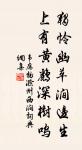 獨怜幽草澗邊生
上有黃鸝深樹鳴
韋應物滁州西澗